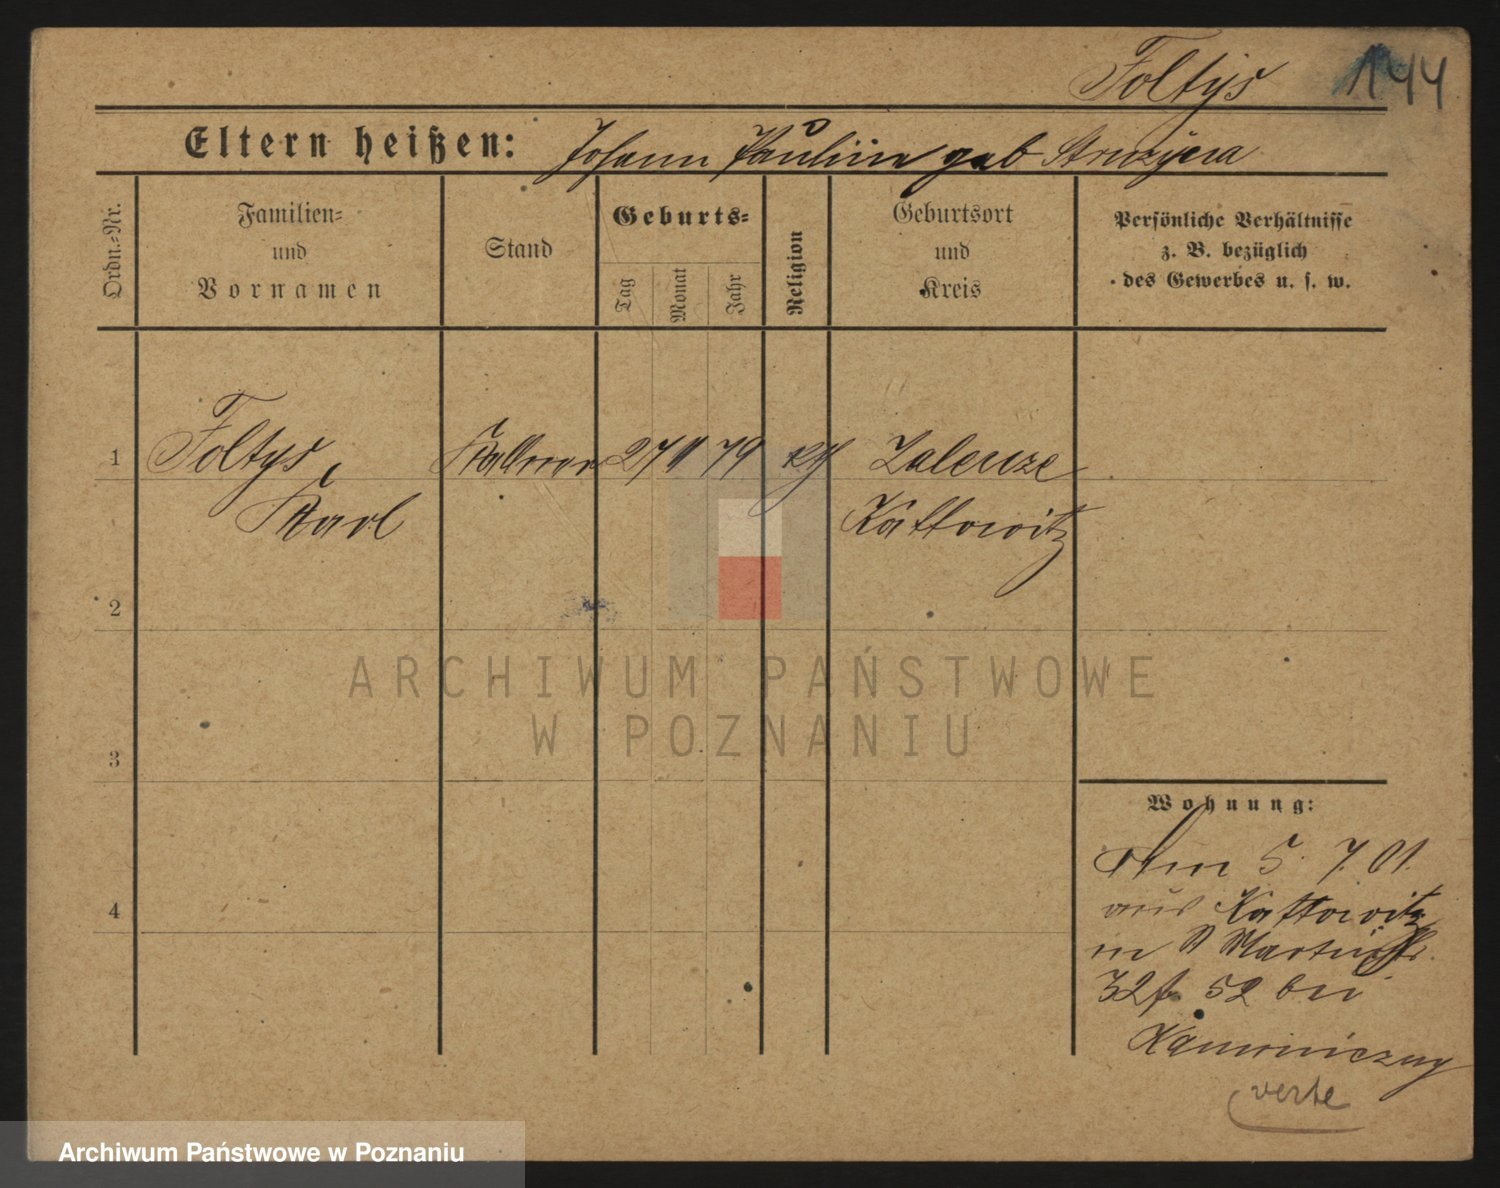 Foltys 144
Eltern heißen: Johann Pauline geb Struzyna
Ordn.=Nr.
Familien=
und
Vornamen
Stand
Geburts=
Tag
Monat
Jahr
Religion
Geburtsort
und
Kreis
Persönliche Verhältnisse
z. B. bezüglich
des Gewerbes u. s. w.
1 Foltys, Kellner 27 11 79 kth Zalenze
Karl Kattowitz
2
3
4
ARCHIWUM PAŃSTWOWE
W POZNANIU
Wohnung:
Am 5. 7. 01.
aus Kattowitz
in St Martinstr.
bei
verte
Archiwum Państwowe w Poznaniu